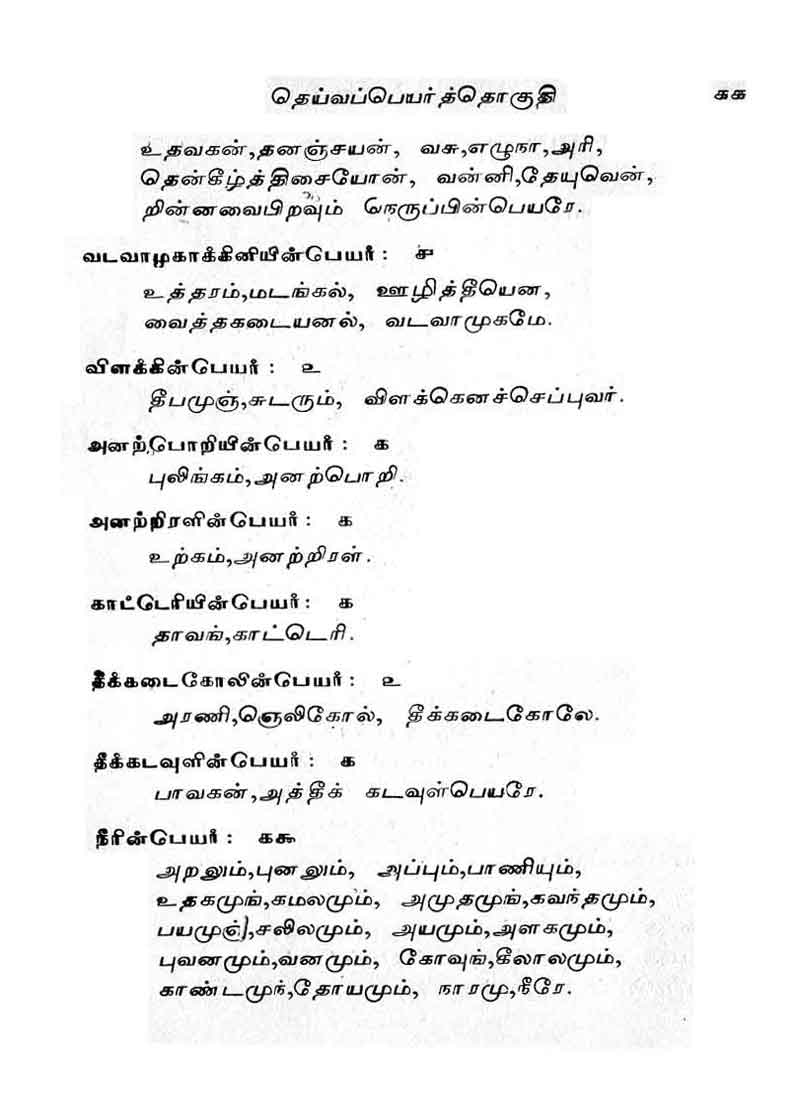 தெய்வப்பெயர்த்தொகுதி ௧௧
உதவகன்,தனஞ்சயன், வசு,எழுநா,அரி,
தென்கீழ்த்திசையோன், வன்னி,தேயுவென்,
றின்னவைபிறவும் நெருப்பின்பெயரே.
வடவாமுகாக்கினியின்பெயர்: ௪
உத்தரம்,மடங்கல், ஊழித்தீயென,
வைத்தகடையனல், வடவாமுகமே.
விளக்கின்பெயர்: ௨
தீபமுஞ்,சுடரும், விளக்கெனச்செப்புவர்.
அனற்பொறியின்பெயர்: ௧
புலிங்கம்,அனற்பொறி.
அனற்றிரளின்பெயர்: ௧
உற்கம்,அனற்றிரள்.
காட்டெரியின்பெயர்: ௧
தாவங்,காட்டெரி.
தீக்கடைகோலின்பெயர்: ௨
அரணி,ஞெலிகோல், தீக்கடைகோலே.
தீக்கடவுளின்பெயர்: ௧
பாவகன்,அத்தீக் கடவுள்பெயரே.
நீரின்பெயர்: ௧௯
அறலும்,புனலும், அப்பும்,பாணியும்,
உதகமுங்,கமலமும், அமுதமுங்,கவந்தமும்,
பயமுஞ்,சலிலமும், அயமும்,அளகமும்,
புவனமும்,வனமும், கோவுங்,கீலாலமும்,
காண்டமுந்,தோயமும், நாரமு,நீரே.